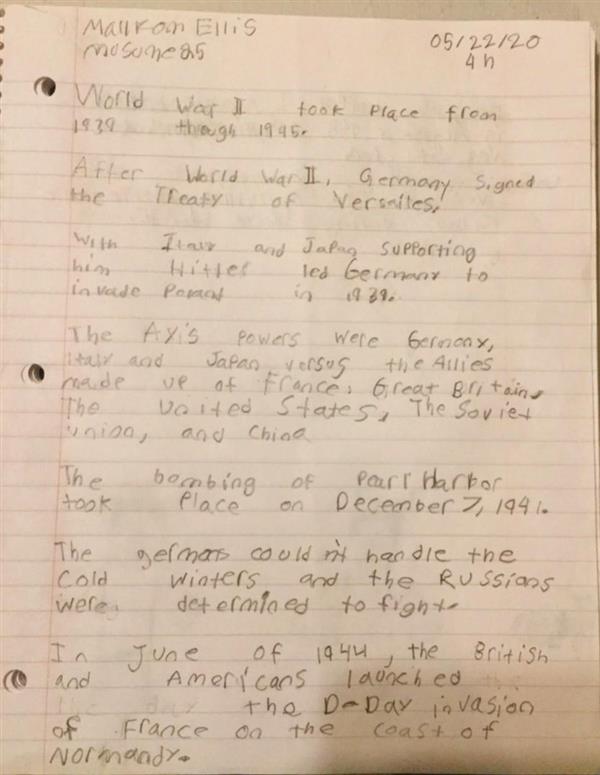 Mallkom Ellis
musome85
05/22/20
4h
World War II took place from
1939 though 1945.
After World War II, Germany signed
the Treaty of Versailles.
With Italy and Japan supporting
him Hitler led Germany to
invade Poland in 1939.
The Axis powers were Germany,
Italy and Japan versus the Allies
made up of France, Great Britain,
The United States, The Soviet
union, and China
The bombing of Pearl Harbor
took place on December 7, 1941.
The germans could n't handle the
cold winters and the Russians
were determined to fight.
In June of 1944, the British
and Americans launched
the D-Day invasion
of France on the coast of
Normandy.